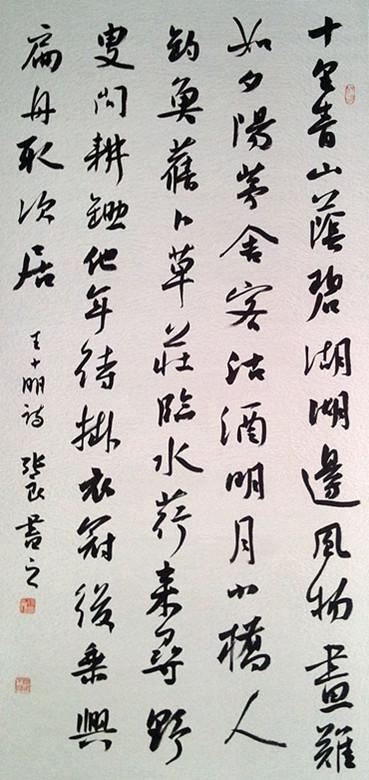 十里青山蔭碧湖湖邊風物畫難
如夕陽茅舍客沽酒明月小橋人
釣魚舊卜草莊臨水來尋野
叟問耕鋤他年待掛衣冠後乘興
扁舟取次居
王十朋詩 張良書之